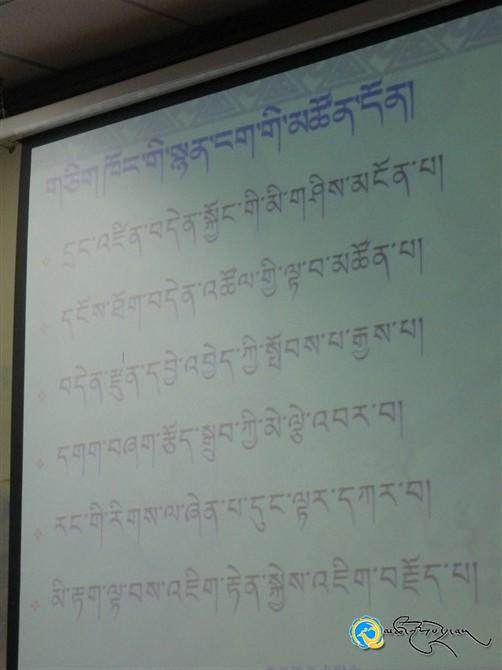 གཅིག ཁོང་གི་སྙན་ངག་གི་མཚོན་དོན།
དྲང་འཛིན་བདེན་སྐྱོང་གི་མི་གཤིས་མངོན་པ།
དངོས་ཐོག་བདེན་འཚོལ་གྱི་ལྟ་བ་མཚོན་པ།
བདེན་རྫུན་དབྱེ་འབྱེད་ཀྱི་སྤོབས་པ་རྒྱས་པ།
དགག་བཞག་རྩོད་སྒྲུབ་ཀྱི་མེ་ལྕེ་འབར་བ།
རང་གི་རིགས་ལ་ཞེན་པ་དུང་ལྟར་དཀར་བ།
མི་རྟག་ལྟ་བས་འཇིག་རྟེན་སྐྱེས་འཇིག་བརྗོད་པ།